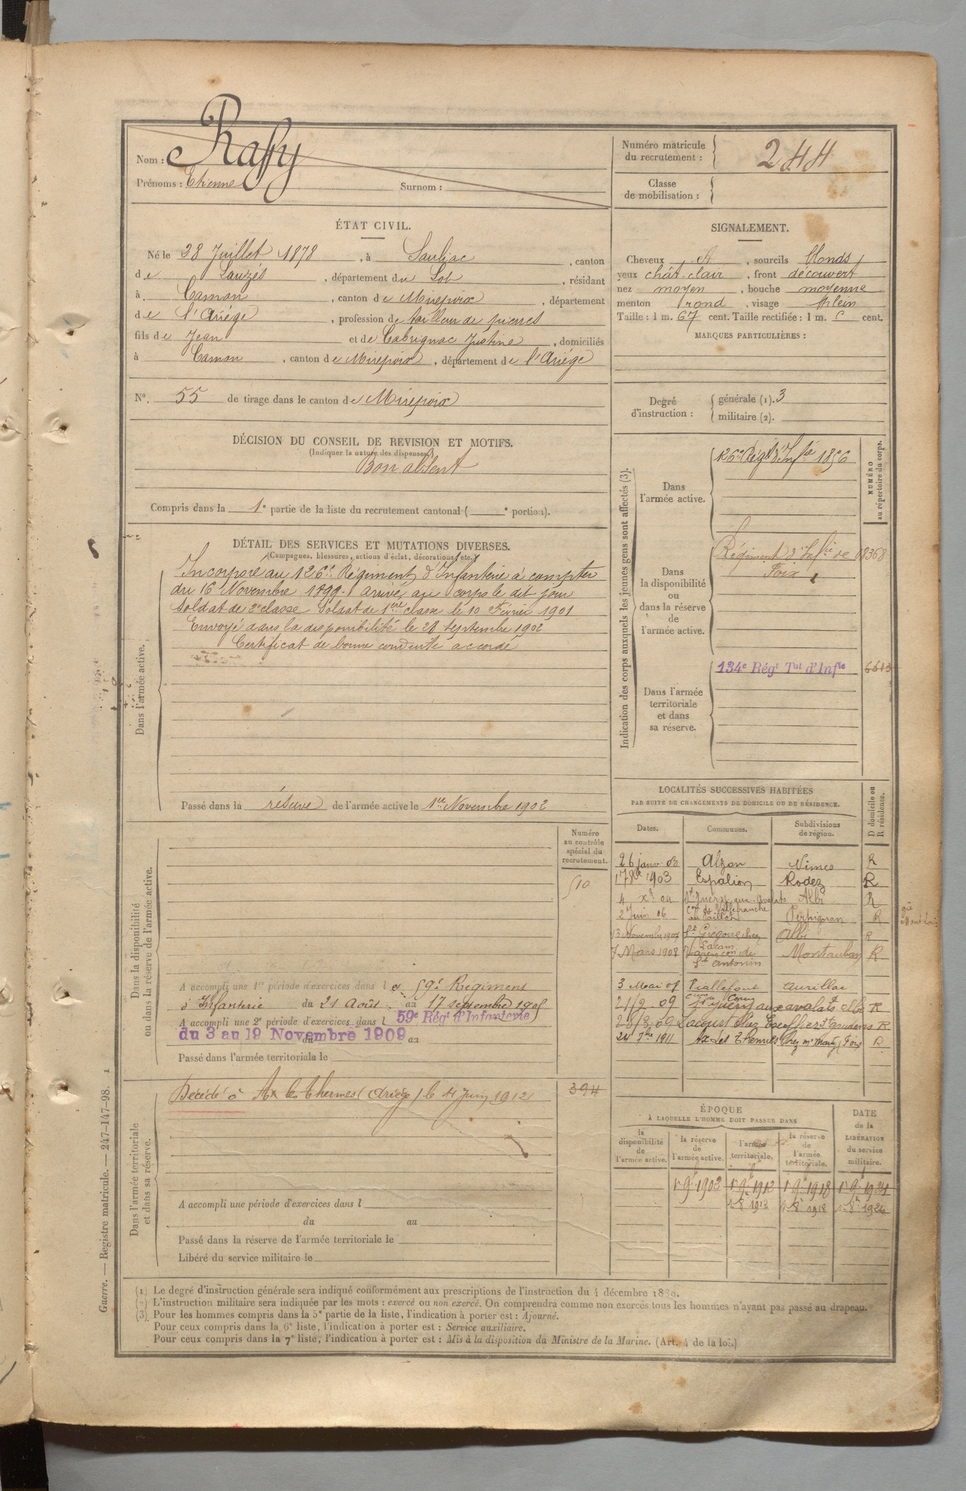 Nom : Raffy
Prénoms : Etienne Surnom :
Numéro matricule du recrutement : 244
Classe de mobilisation :
ÉTAT CIVIL.
Né le 28 Juillet 1878, à Sauliac, canton
de Lauzès, département du Lot, résidant
à Camon, canton de Mirepoix, département
de l'Ariège, profession de tailleur de pierres
fils de Jean et de Cabrignac Justine, domiciliés
à Camon, canton de Mirepoix, département de l'Ariège
N°. 55 de tirage dans le canton de Mirepoix
DÉCISION DU CONSEIL DE REVISION ET MOTIFS.
(Indiquer la nature des dispenses.)
Bon absent
Compris dans la 1e partie de la liste du recrutement cantonal ( e portion).
SIGNALEMENT.
Cheveux et, sourcils blonds
yeux chât. clair, front découvert
nez moyen, bouche moyenne
menton rond, visage plein
Taille : 1 m. 67 cent. Taille rectifiée : 1 m. cent.
MARQUES PARTICULIÈRES :
Degré d'instruction : générale (1). 3
militaire (2).
DÉTAIL DES SERVICES ET MUTATIONS DIVERSES.
(Campagnes, blessures, actions d'éclat, décorations, etc.)
Dans l'armée active.
Incorporé au 126e Régiment d'Infanterie à compter
du 16 Novembre 1899. arrivé au corps le dit jour
Soldat de 2e classe. Soldat de 1ère classe le 10 Février 1901
Envoyé dans la disponibilité le 21 septembre 1902
Certificat de bonne conduite accordé
Passé dans la réserve de l'armée active le 1er Novembre 1902
Indication des corps auxquels les jeunes gens sont affectés (3).
NUMÉRO au répertoire du corps.
Dans l'armée active.
126e Régt d'Infie
Dans la disponibilité ou dans la réserve de l'armée active.
Régiment d'Infie de
Foix
Dans l'armée territoriale et dans sa réserve.
134e Régt Tal d'Infie 6613
Dans la disponibilité ou dans la réserve de l'armée active.
Numéro au contrôle spécial du recrutement.
510
A accompli une 1e période d'exercices dans le 59e Régiment
d'Infanterie du 21 Août au 17 septembre 1905
A accompli une 2e période d'exercices dans l 59e Régt d'Infanterie
du 3 au 19 Novembre 1909 du au
Passé dans l'armée territoriale le
Dans l'armée territoriale et dans sa réserve.
Décédé à Ax les Thermes (Ariège) le 4 Juin 1912
394
A accompli une période d'exercices dans l
du au
Passé dans la réserve de l'armée territoriale le
Libéré du service militaire le
LOCALITÉS SUCCESSIVES HABITÉES
PAR SUITE DE CHANGEMENTS DE DOMICILE OU DE RÉSIDENCE.
Dates. Communes. Subdivisions de région. D domicile ou R résidence.
26 janv. 03 Alzon Nîmes R
1903 Espalion Rodez R
Albi R
2 Juin 06 Perpignan R
3 Novembre 190 St Grégoire Albi R
7 Mars 1908 Varen con de St Antonin Montauban R
3 Mai 09 Aurillac
09 Albi R
St Gaudens R
1911 Ax-les Thermes Foix
ÉPOQUE
À LAQUELLE L'HOMME DOIT PASSER DANS
la disponibilité de l'armée active.
la réserve de l'armée active.
l'armée territoriale.
la réserve de l'armée territoriale.
DATE de la LIBÉRATION du service militaire.
1er 9bre 1902 1er 9bre 1912 1er 9bre 1918 1er 9bre 1924
Guerre. — Registre matricule. — 247-147-98.
(1) Le degré d'instruction générale sera indiqué conformément aux prescriptions de l'instruction du 4 décembre 1889.
(2) L'instruction militaire sera indiquée par les mots : exercé ou non exercé. On comprendra comme non exercés tous les hommes n'ayant pas passé au drapeau.
(3) Pour les hommes compris dans la 5e partie de la liste, l'indication à porter est : Ajourné.
Pour ceux compris dans la 6e liste, l'indication à porter est : Service auxiliaire.
Pour ceux compris dans la 7e liste, l'indication à porter est : Mis à la disposition du Ministre de la Marine. (Art. 4 de la loi.)